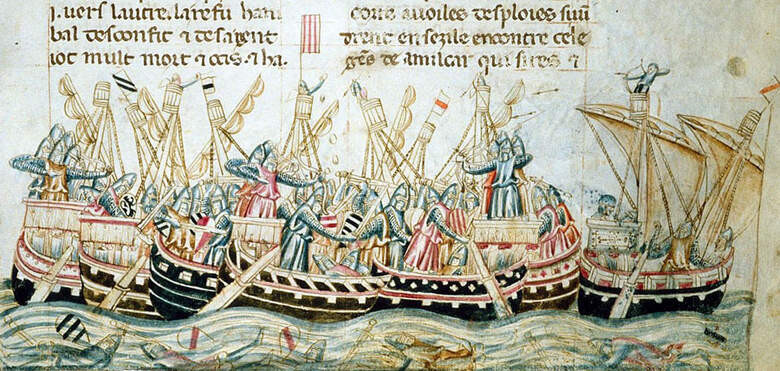 uers lautre. la refu han
bal desconfit ⁊ desagent
iot mult mort ⁊ ocis. ⁊ ha.
auoiles desploies
drent en sezile encontre cele
gēs de amilcar qui sires ⁊